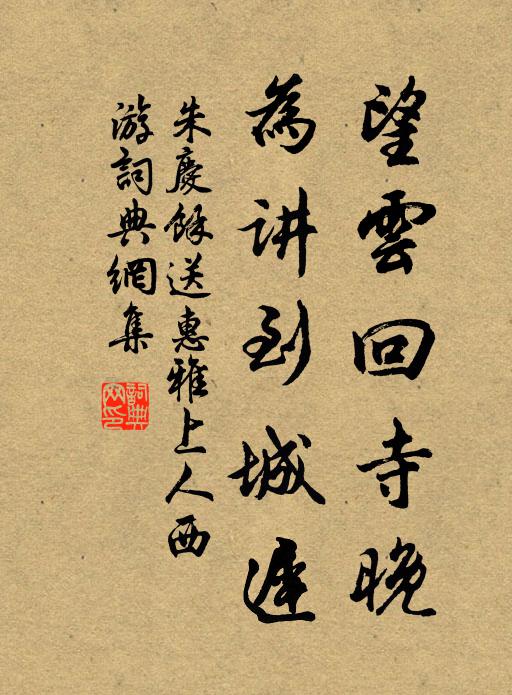 望雲回寺晚
為讲到城遲
朱慶餘送惠雅上人西
游詞典網集
詞典
网印